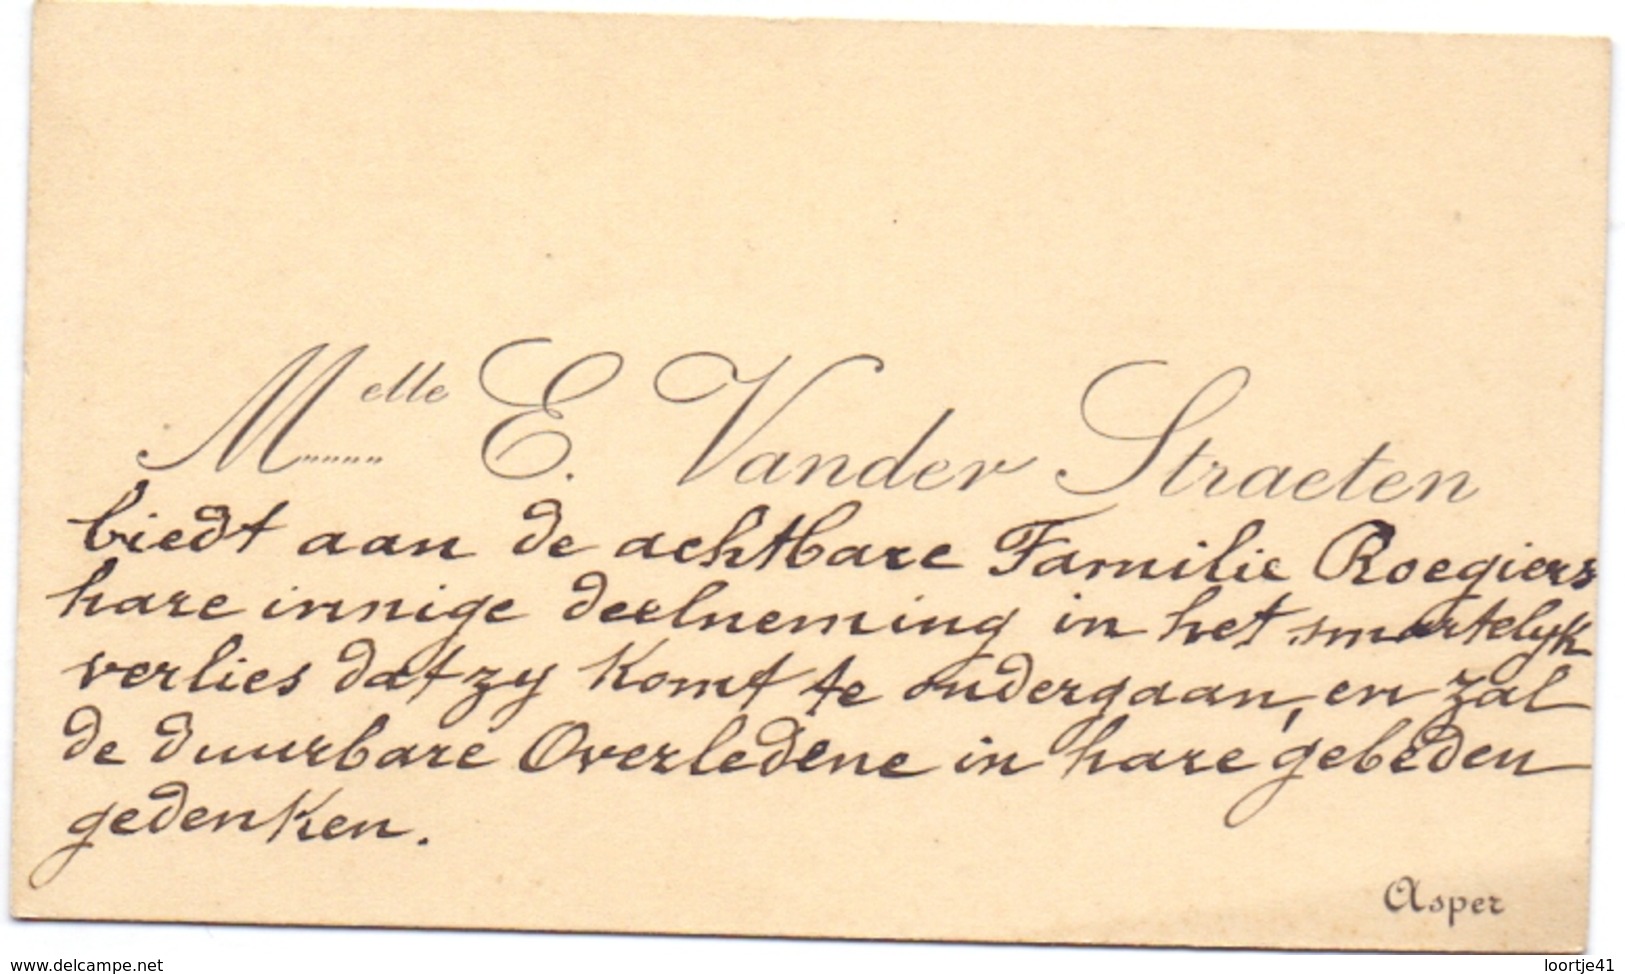 Melle E. Vander Straeten
biedt aan de achtbare Familie Roegiers
hare innige deelneming in het smartelyk
verlies dat zy komt te ondergaan, en zal
de duurbare Overledene in hare gebeden
gedenken.
Asper
www.delcampe.net
loortje41